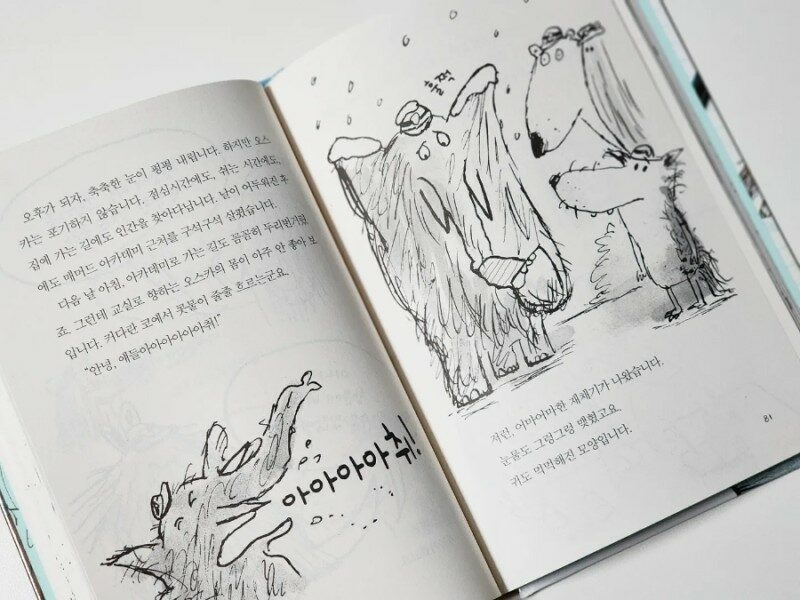 오후가 되자, 축축한 눈이 펑펑 내립니다. 하지만 오스
카는 포기하지 않습니다. 점심시간에도, 쉬는 시간에도,
집에 가는 길에도 인간을 찾아다닙니다. 날이 어두워진 후
에도 매머드 아카데미 근처를 구석구석 살폈습니다.
다음 날 아침, 아카데미로 가는 길도 꼼꼼히 두리번거렸
죠. 그런데 교실로 향하는 오스카의 몸이 아주 안 좋아 보
입니다. 커다란 코에서 콧물이 줄줄 흐르는군요.
“안녕, 얘들아아아아아아취!”
아아아아아취!
훌쩍
저런, 어마어마한 재채기가 나왔습니다.
눈물도 그렁그렁 맺혔고요.
귀도 먹먹해진 모양입니다.
81